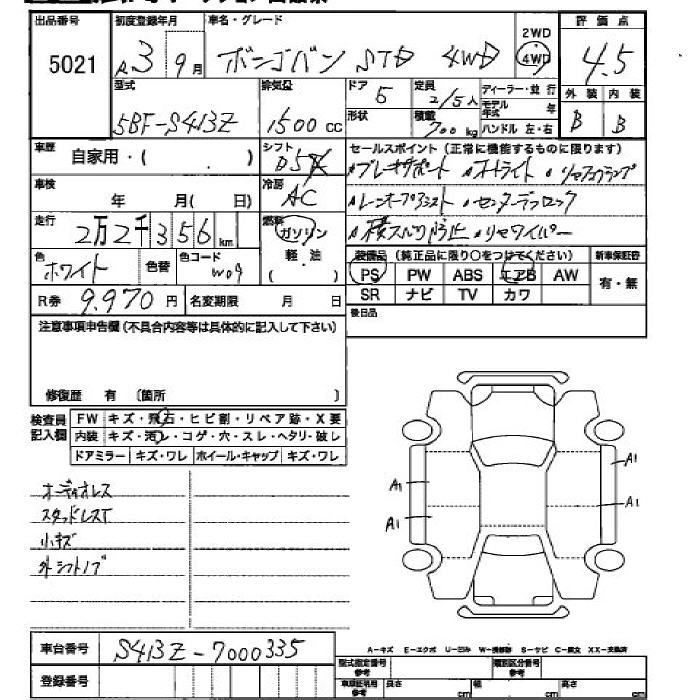 出品番号 初度登録年月 車名・グレード 2WD 評価点
5021 R3 9月 ボンゴバン STD 4WD 4WD 4.5
型式 排気量 ドア 定員 ディーラー・並行 外装 内装
5BF-S413Z 1500cc 5 2/5人 モデル年式 年 B B
形状 積載 700kg ハンドル 左・右
車歴 自家用・( ) シフト D5 セールスポイント(正常に機能するものに限ります)
ブレーキサポート オートライト リヤフォグランプ
車検 年 月(日) 冷房 AC レーンキープアシスト センターデフロック
走行 2万2千356km 燃料 ガソリン 横スベリ防止 リヤワイパー
軽・油
( )
色 ホワイト 色替 色コード W09 装備品(純正品に限り〇をつけてください) 新車保証書
PS PW ABS エアB AW 有・無
R券 9.970円 名変期限 月 日 SR ナビ TV カワ
注意事項申告欄(不具合内容等は具体的に記入して下さい) 後日品
修復歴 有 〔箇所 〕
検査員 FW キズ・飛石・ヒビ割・リペア跡・X要
記入欄 内装 キズ・汚レ・コゲ・穴・スレ・ヘタリ・破レ
ドアミラー キズ・ワレ ホイール・キャップ キズ・ワレ
A1 A1
A1 A1
オーディオレス
スタッドレスT
小キズ
外シフトノブ
車台番号 S413Z-7000335
A-キズ E-エクボ U-凹み W-補修跡 S-サビ C-腐食 XX-交換済
登録番号 型式指定番号 参考 類別区分番号 参考
車証証明用 参考 長さ cm 幅 cm 高さ cm